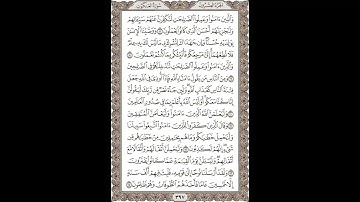 الجزء العشرون سورة العنكبوت
وَالَّذِينَ ءَامَنُوا وَعَمِلُوا الصَّٰلِحَٰتِ لَنُكَفِّرَنَّ عَنْهُمْ سَيِّـَٔاتِهِمْ
وَلَنَجْزِيَنَّهُمْ أَحْسَنَ الَّذِي كَانُوا يَعْمَلُونَ ٧ وَوَصَّيْنَا الْإِنسَٰنَ
بِوَٰلِدَيْهِ حُسْنًا وَإِن جَٰهَدَاكَ لِتُشْرِكَ بِي مَا لَيْسَ لَكَ بِهِ عِلْمٌ
فَلَا تُطِعْهُمَا إِلَيَّ مَرْجِعُكُمْ فَأُنَبِّئُكُم بِمَا كُنتُمْ تَعْمَلُونَ ٨
وَالَّذِينَ ءَامَنُوا وَعَمِلُوا الصَّٰلِحَٰتِ لَنُدْخِلَنَّهُمْ فِي الصَّٰلِحِينَ
٩ وَمِنَ النَّاسِ مَن يَقُولُ ءَامَنَّا بِاللَّهِ فَإِذَا أُوذِيَ فِي اللَّهِ
جَعَلَ فِتْنَةَ النَّاسِ كَعَذَابِ اللَّهِ وَلَئِن جَاءَ نَصْرٌ مِّن رَّبِّكَ لَيَقُولُنَّ
إِنَّا كُنَّا مَعَكُمْ أَوَلَيْسَ اللَّهُ بِأَعْلَمَ بِمَا فِي صُدُورِ الْعَٰلَمِينَ
١٠ وَلَيَعْلَمَنَّ اللَّهُ الَّذِينَ ءَامَنُوا وَلَيَعْلَمَنَّ الْمُنَٰفِقِينَ
١١ وَقَالَ الَّذِينَ كَفَرُوا لِلَّذِينَ ءَامَنُوا اتَّبِعُوا سَبِيلَنَا
وَلْنَحْمِلْ خَطَٰيَٰكُمْ وَمَا هُم بِحَٰمِلِينَ مِنْ خَطَٰيَٰهُم مِّن
شَيْءٍ إِنَّهُمْ لَكَٰذِبُونَ ١٢ وَلَيَحْمِلُنَّ أَثْقَالَهُمْ وَأَثْقَالًا مَّعَ
أَثْقَالِهِمْ وَلَيُسْـَٔلُنَّ يَوْمَ الْقِيَٰمَةِ عَمَّا كَانُوا يَفْتَرُونَ
١٣ وَلَقَدْ أَرْسَلْنَا نُوحًا إِلَىٰ قَوْمِهِ فَلَبِثَ فِيهِمْ أَلْفَ سَنَةٍ
إِلَّا خَمْسِينَ عَامًا فَأَخَذَهُمُ الطُّوفَانُ وَهُمْ ظَٰلِمُونَ ١٤
٣٩٧